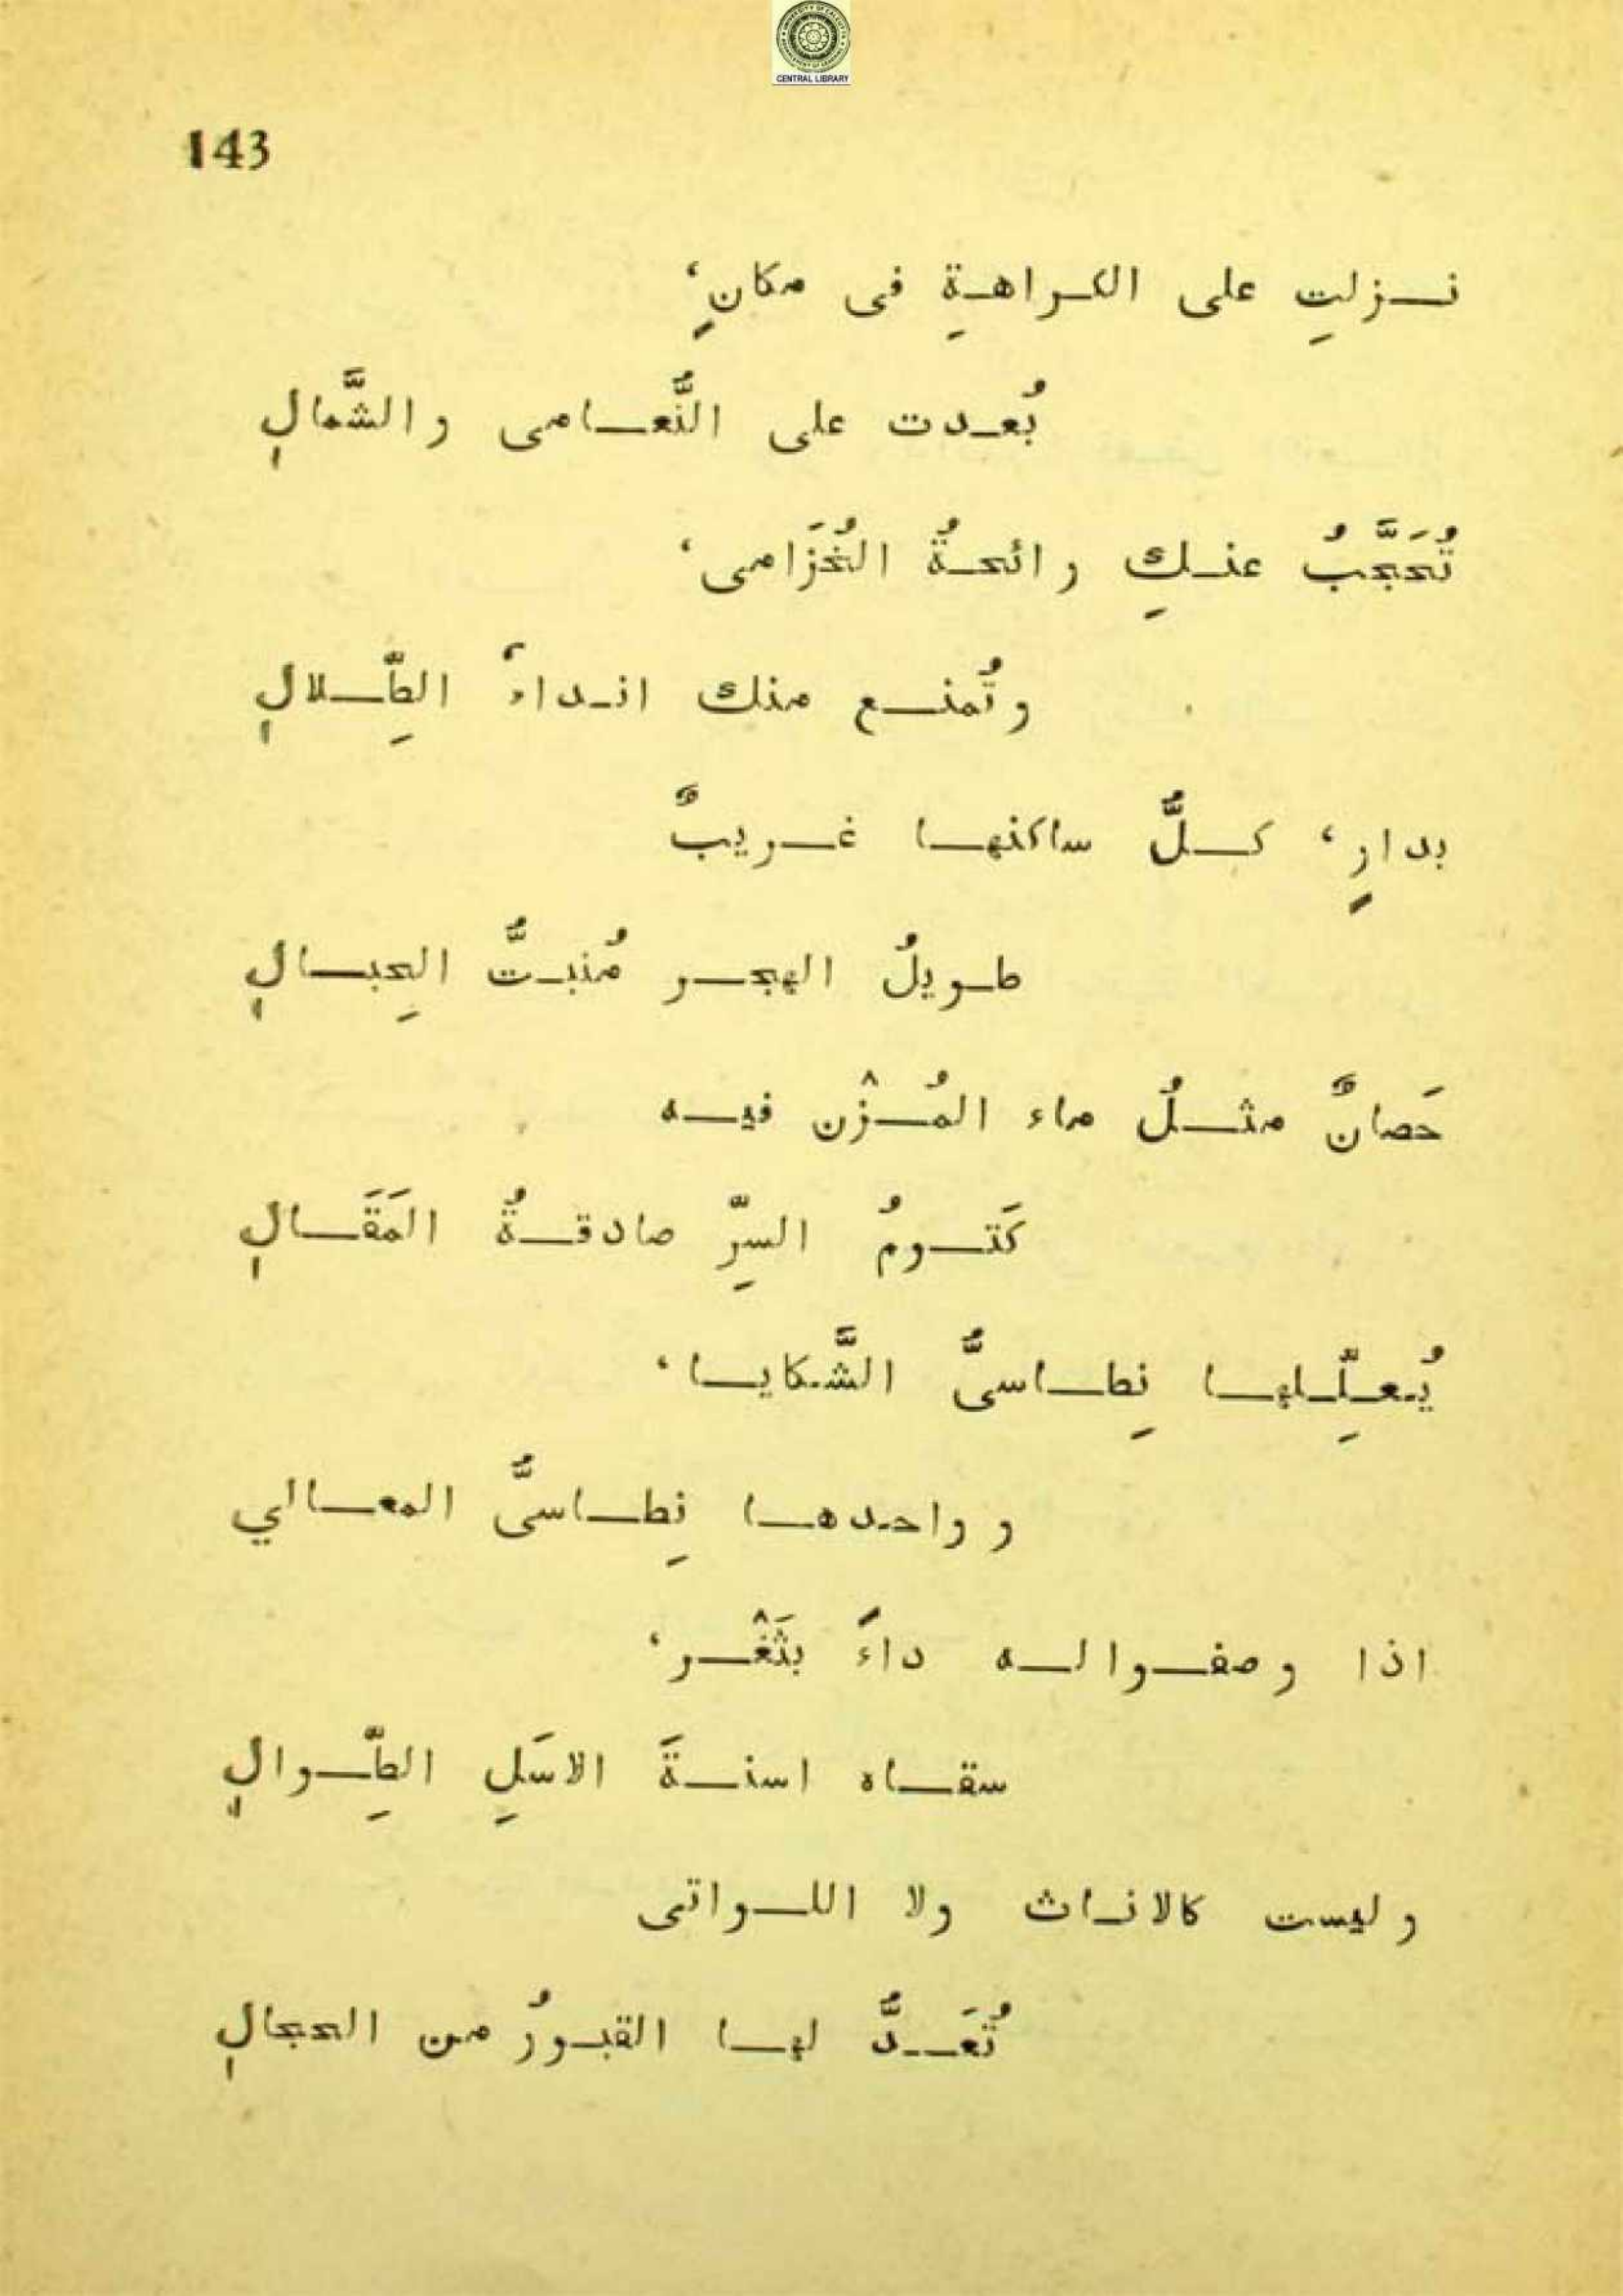 CENTRAL LIBRARY
143
نزلتِ على الكراهةِ فى مكانٍ،
بُعدت على النُّعامى والشَّمالِ
تُحَجَّبُ عنكِ رائحةُ الخُزَامى،
وتُمنع منك انداءُ الطِّلالِ
بدارٍ، كلُّ ساكنها غريبٌ
طويلُ الهجر مُنبتُّ الحِبالِ
حَصانٌ مثلُ ماء المُزْن فيه
كَتومُ السِّرّ صادقةُ المَقَالِ
يُعلِّلها نِطاسىُّ الشَّكايا،
وواحدها نِطاسىُّ المعالي
اذا وصفوا له داءً بثَغْر،
سقاه اسنةَ الاسَلِ الطِّوالِ
وليست كالاناث ولا اللواتى
تُعَدُّ لها القبورُ من الحجالِ